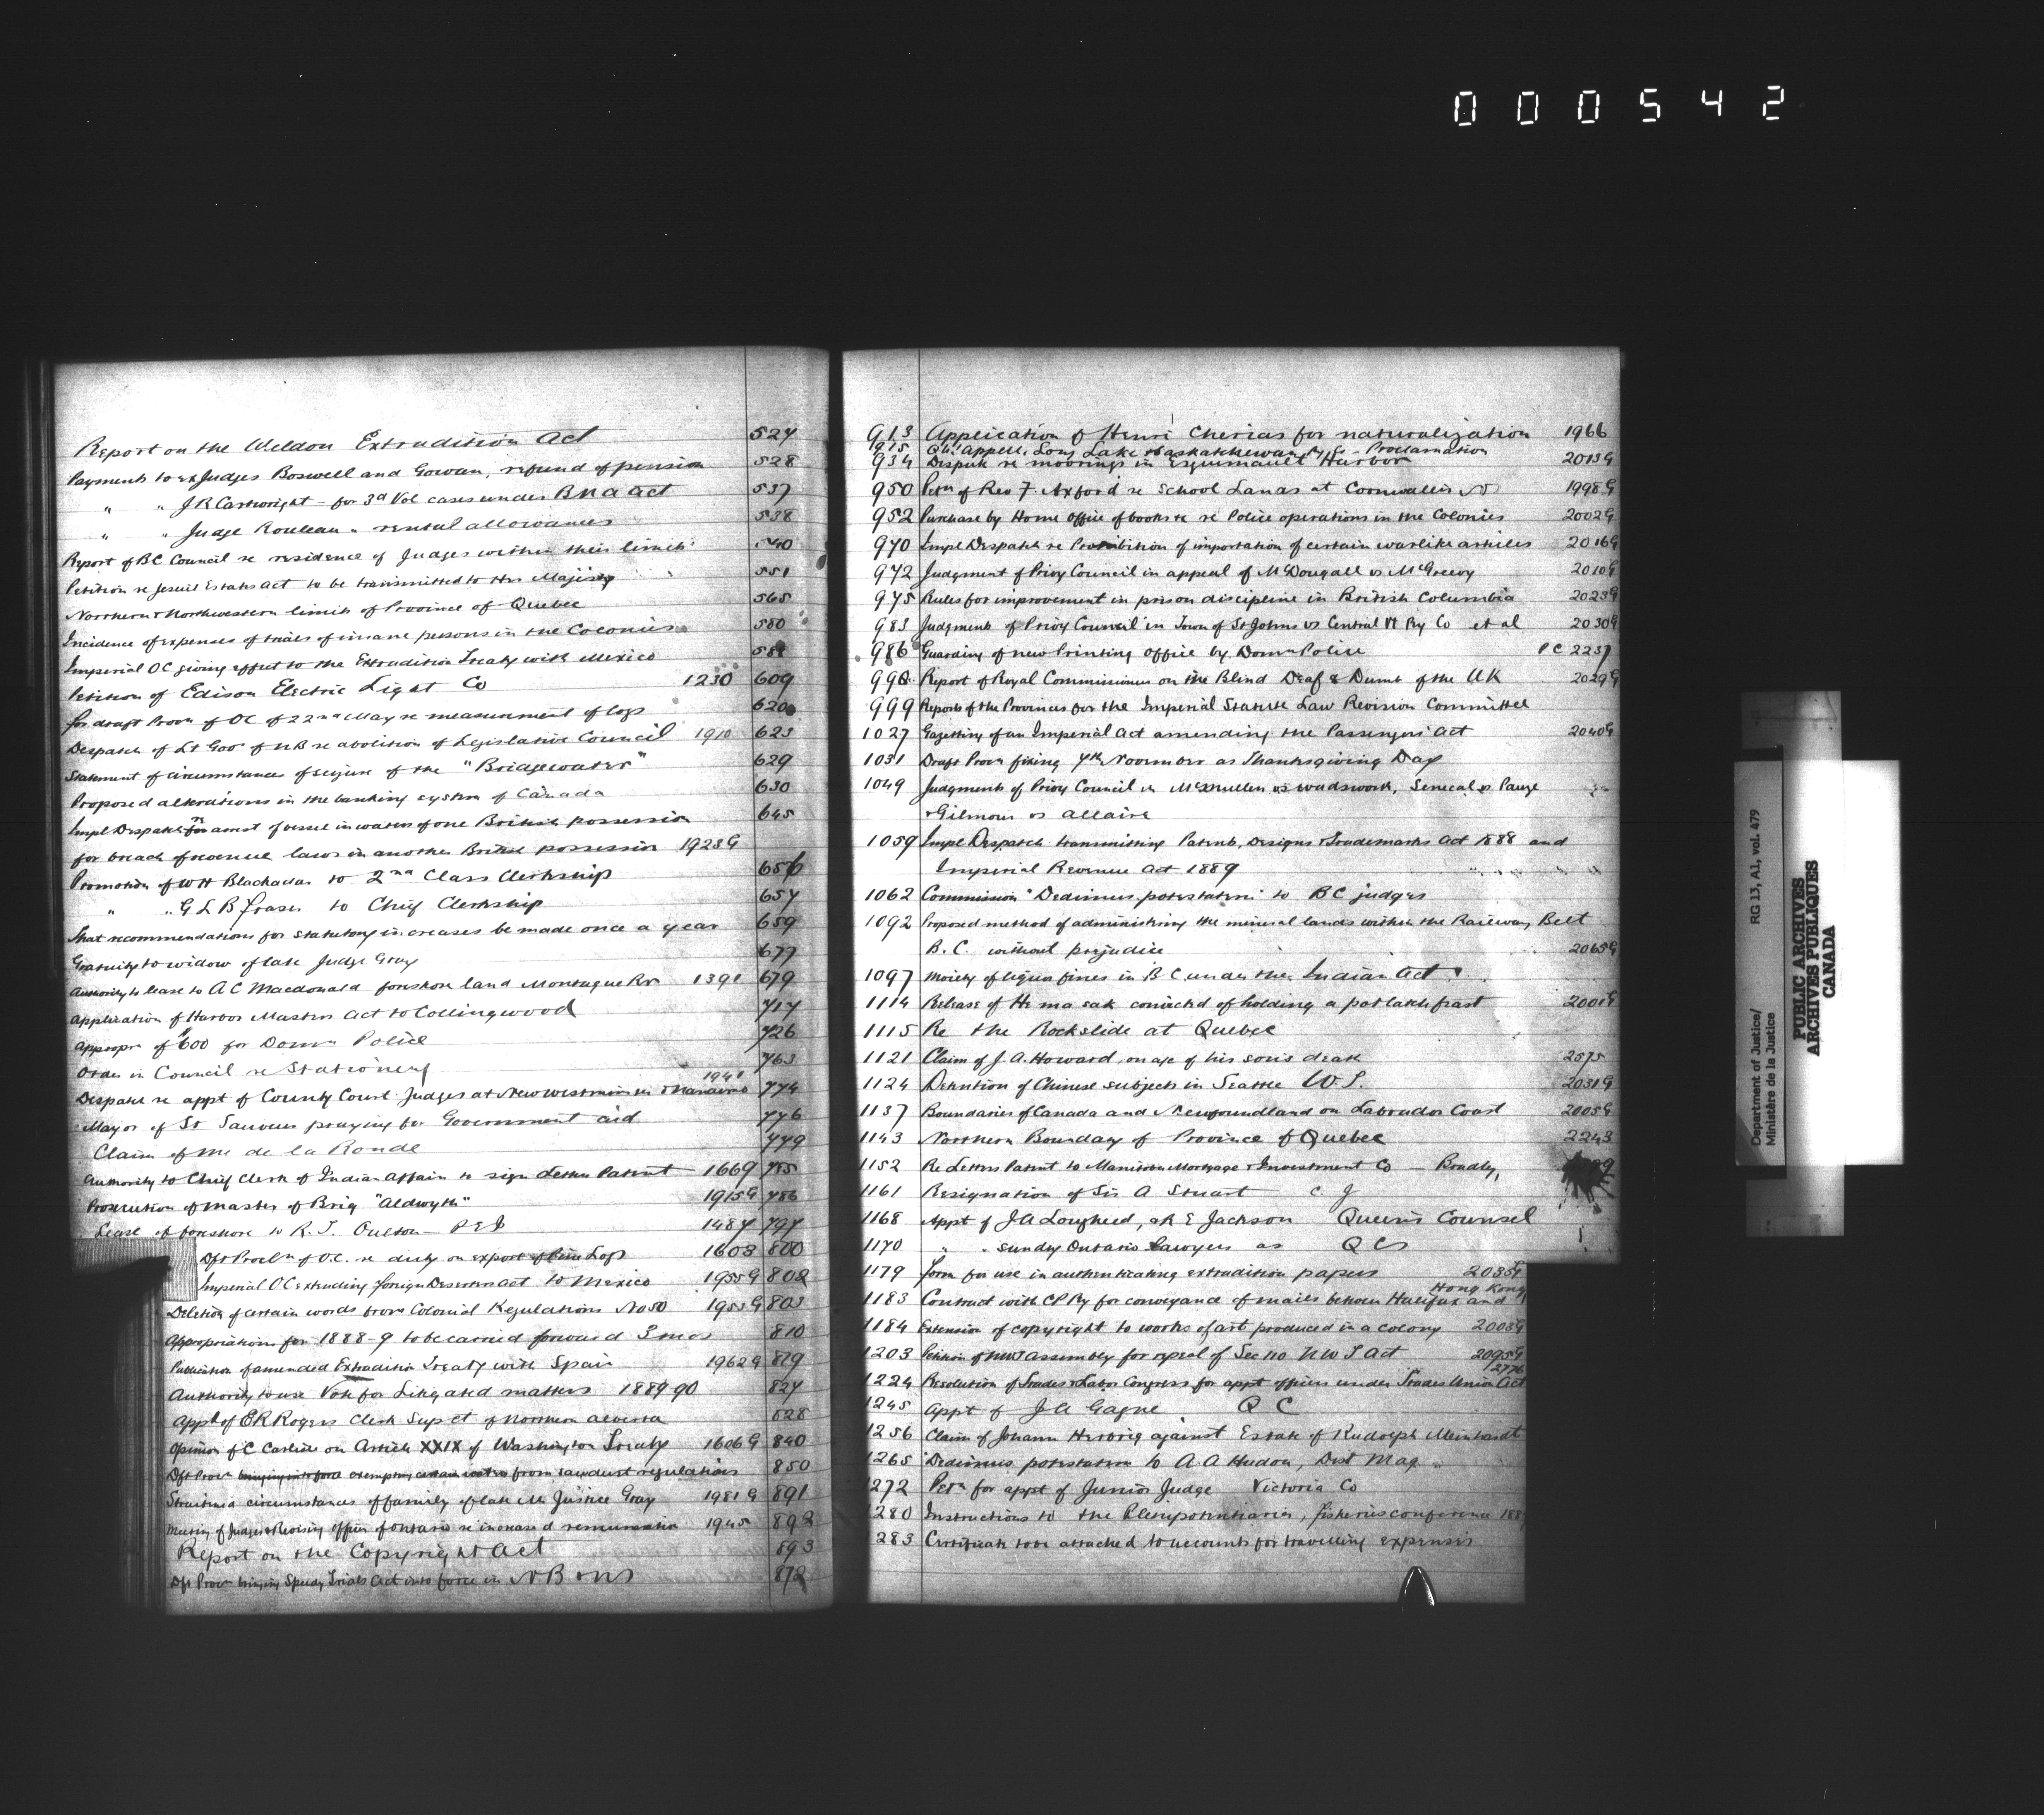 000542
Report on the Weldon Extradition Act 527
Payments to ex Judges Boswell and Gowan, refund of pension 528
" " J R Cartwright - for 3d Vol cases under BNA Act 537
" " Judge Rouleau " rental allowances 538
Report of BC Council re residence of Judges within their limits 540
Petition re Jesuit Estates Act to be transmitted to Her Majesty 551
Northern & Northwestern limits of Province of Quebec 565
Incidence of expenses of trials of insane persons in the Colonies 580
Imperial OC giving effect to the Extradition Treaty with Mexico
Petition of Edison Electric Light Co 1230 609
for draft Procn of OC of 22nd May re measurement of logs 620
Despatch of Lt Gov of NB re abolition of Legislative Council 1910 623
Statement of circumstances of seizure of the "Bridgewater" 629
Proposed alterations in the banking system of Canada 630
Impl Despatch arrest of vessel in waters of one British possession 645
for breach of revenue laws in another British possession 1923G
Promotion of W H Blackadar to 2nd Class Clerkship 656
" " G L B Fraser to Chief Clerkship 657
That recommendations for statutory increases be made once a year 659
Gratuity to widow of late Judge Gray 677
Authority to lease to A C Macdonald foreshore land Montague Rr 1391 679
Application of Harbor Masters Act to Collingwood 717
Appropn of $600 for Domn Police 726
Order in Council re Stationery 763
Despatch re appt of County Court Judges at New Westminster & Nanaimo 1941 774
Mayor of St Sauveur praying for Government aid 776
Claim of Mr de la Ronde 779
Authority to Chief Clerk of Indian Affairs to sign Letters Patent 1669 785
Prosecution of master of Brig "Aldwyth" 1915G 786
Lease of foreshore to R. T. Oulton P E I 1487 797
Dft Procln of O.C. re duty on export of Pine Logs 1603 800
Imperial OC extending foreign Deserters Act to Mexico 1955G 802
Deletion of certain words from Colonial Regulations No 50 1953G 803
Appropriations for 1888-9 to be carried forward 3 mos 810
Publication of amended Extradition Treaty with Spain 1962G 819
Authority to use Vote for Litigated matters 1889-90 827
Appt of E R Rogers Clerk Sup Ct of Northern Alberta 828
Opinion of C Carlisle on Article XXIX of Washington Treaty 1606G 840
Dft Procn bringing into force exempting certain waters from sawdust regulations 850
Straitened circumstances of family of late Mr Justice Gray 1981G 891
Meeting of Judges & Revising officers of Ontario re increased remuneration 1945 892
Report on the Copyright Act 893
Dft Procn bringing Speedy Trials Act into force in NB & NS
913 Application of Henri Cherias for naturalization 1966
915 Qu'Appelle, Long Lake & Saskatchewan Ry Co - Proclamation
934 Despatch re moorings in Esquimault Harbor 2013G
950 Petn of Rev F. Axford re School Lands at Cornwallis NS 1998G
952 Purchase by Home Office of books &c re Police operations in the Colonies 2002G
970 Impl Despatch re Prohibition of importation of certain warlike articles 2016G
972 Judgment of Privy Council in appeal of McDougall vs McGreevy 2010G
975 Rules for improvement in prison discipline in British Columbia 2023G
983 Judgment of Privy Council in Town of St Johns vs Central Vt Ry Co et al 2030G
986 Guarding of new Printing Office by Domn Police PC 2237
998 Report of Royal Commissioners on the Blind Deaf & Dumb of the UK 2029G
999 Reports of the Provinces for the Imperial Statute Law Revision Committee
1027 Gazetting of an Imperial Act amending the Passengers' Act 2040G
1031 Draft Procn fixing 7th November as Thanksgiving Day
1049 Judgments of Privy Council in McMullen vs Wadsworth, Senecal vs Pauze
& Gilmour vs Allaire
1059 Impl Despatch transmitting Patents, Designs & Trademarks Act 1888 and
Imperial Revenue Act 1889
1062 Commission "Dedimus potestatem" to BC judges
1092 Proposed method of administering the mineral lands within the Railway Belt
B.C. without prejudice 2065G
1097 Moiety of liquor fines in B.C. under the Indian Act
1114 Release of He ma sak convicted of holding a potlatch feast 2001G
1115 Re the Rockslide at Quebec
1121 Claim of J. A. Howard, on a/c of his son's death 2575
1124 Detention of Chinese subjects in Seattle W.T. 2031G
1137 Boundaries of Canada and Newfoundland on Labrador Coast 2005G
1143 Northern Boundary of Province of Quebec 2243
1152 Re Letters Patent to Manitoba Mortgage & Investment Co - Bradley,
1161 Resignation of Sir A Stuart C J
1168 Appt of J A Lougheed, & R E Jackson Queen's Counsel
1170 " " sundry Ontario Lawyers as QCs
1179 Form for use in authenticating extradition papers 2035G
1183 Contract with CP Ry for conveyance of mails between Halifax and Hong Kong
1184 Extension of copyright to works of art produced in a colony 2003G
1203 Petition of NWT Assembly for repeal of Sec 110 N W T Act 2095G
1224 Resolution of Trades & Labor Congress for appt officers under Trades Union Act 2776
1245 Appt of J A Gagne Q C
1256 Claim of Johann Herbrig against Estate of Rudolph Meinhardt
1265 "Dedimus potestatem to A. A Hudon, Dist Mag
1272 Petn for appt of Junior Judge Victoria Co
280 Instructions to the Plenipotentiaries, fisheries conference 188
283 Certificate to be attached to accounts for travelling expenses
Department of Justice/
Ministère de la Justice
RG 13, A1, vol. 479
PUBLIC ARCHIVES
ARCHIVES PUBLIQUES
CANADA